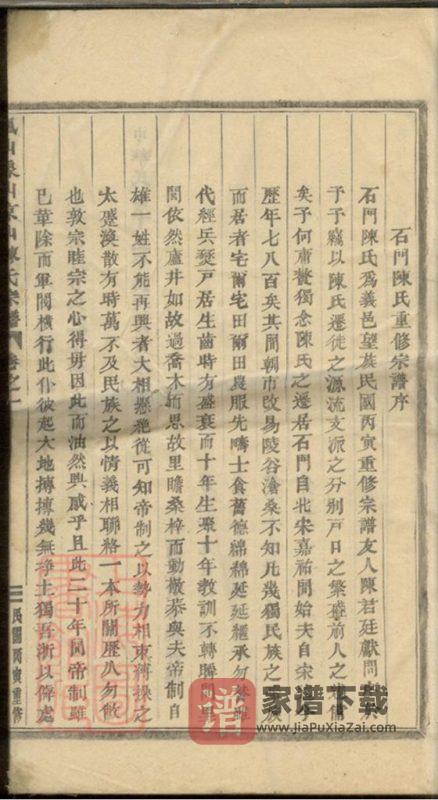 石門陳氏重修宗譜序
石門陳氏爲義邑望族民國丙寅重修宗譜友人陳君廷獻問序
于予竊以陳氏遷徙之源流支派之分別戸口之繁盛前人之備
矣予何庸贅獨念陳氏之遷居石門自北宋嘉祐間始夫自宋
歷年七八百矣其間朝市改易陵谷滄桑不知凡幾獨民族之
而居者宅爾宅田爾田農服先疇士食舊德綿綿延延繼承勿替雖
代經兵燹戸居生齒時有盛衰而十年生聚十年教訓不轉瞬
閭依然廬井如故過喬木而思故里瞻桑梓而動敬恭與夫帝制自
雄一姓不能再興者大相懸絕從可知帝制之以勢力相束縛操之
太蹙渙散有時萬不及民族之以情義相聯絡一本所關歷久勿散
也敦宗睦宗之心得毋因此而油然興感乎且此二十年間帝制雖
已革除而軍閥橫行此仆彼起大地摶摶幾無淨土獨吾浙以偉處
陳氏宗譜
卷之一
民國丙寅重修
譜
家谱下载
www.JiaPuXiaZai.com